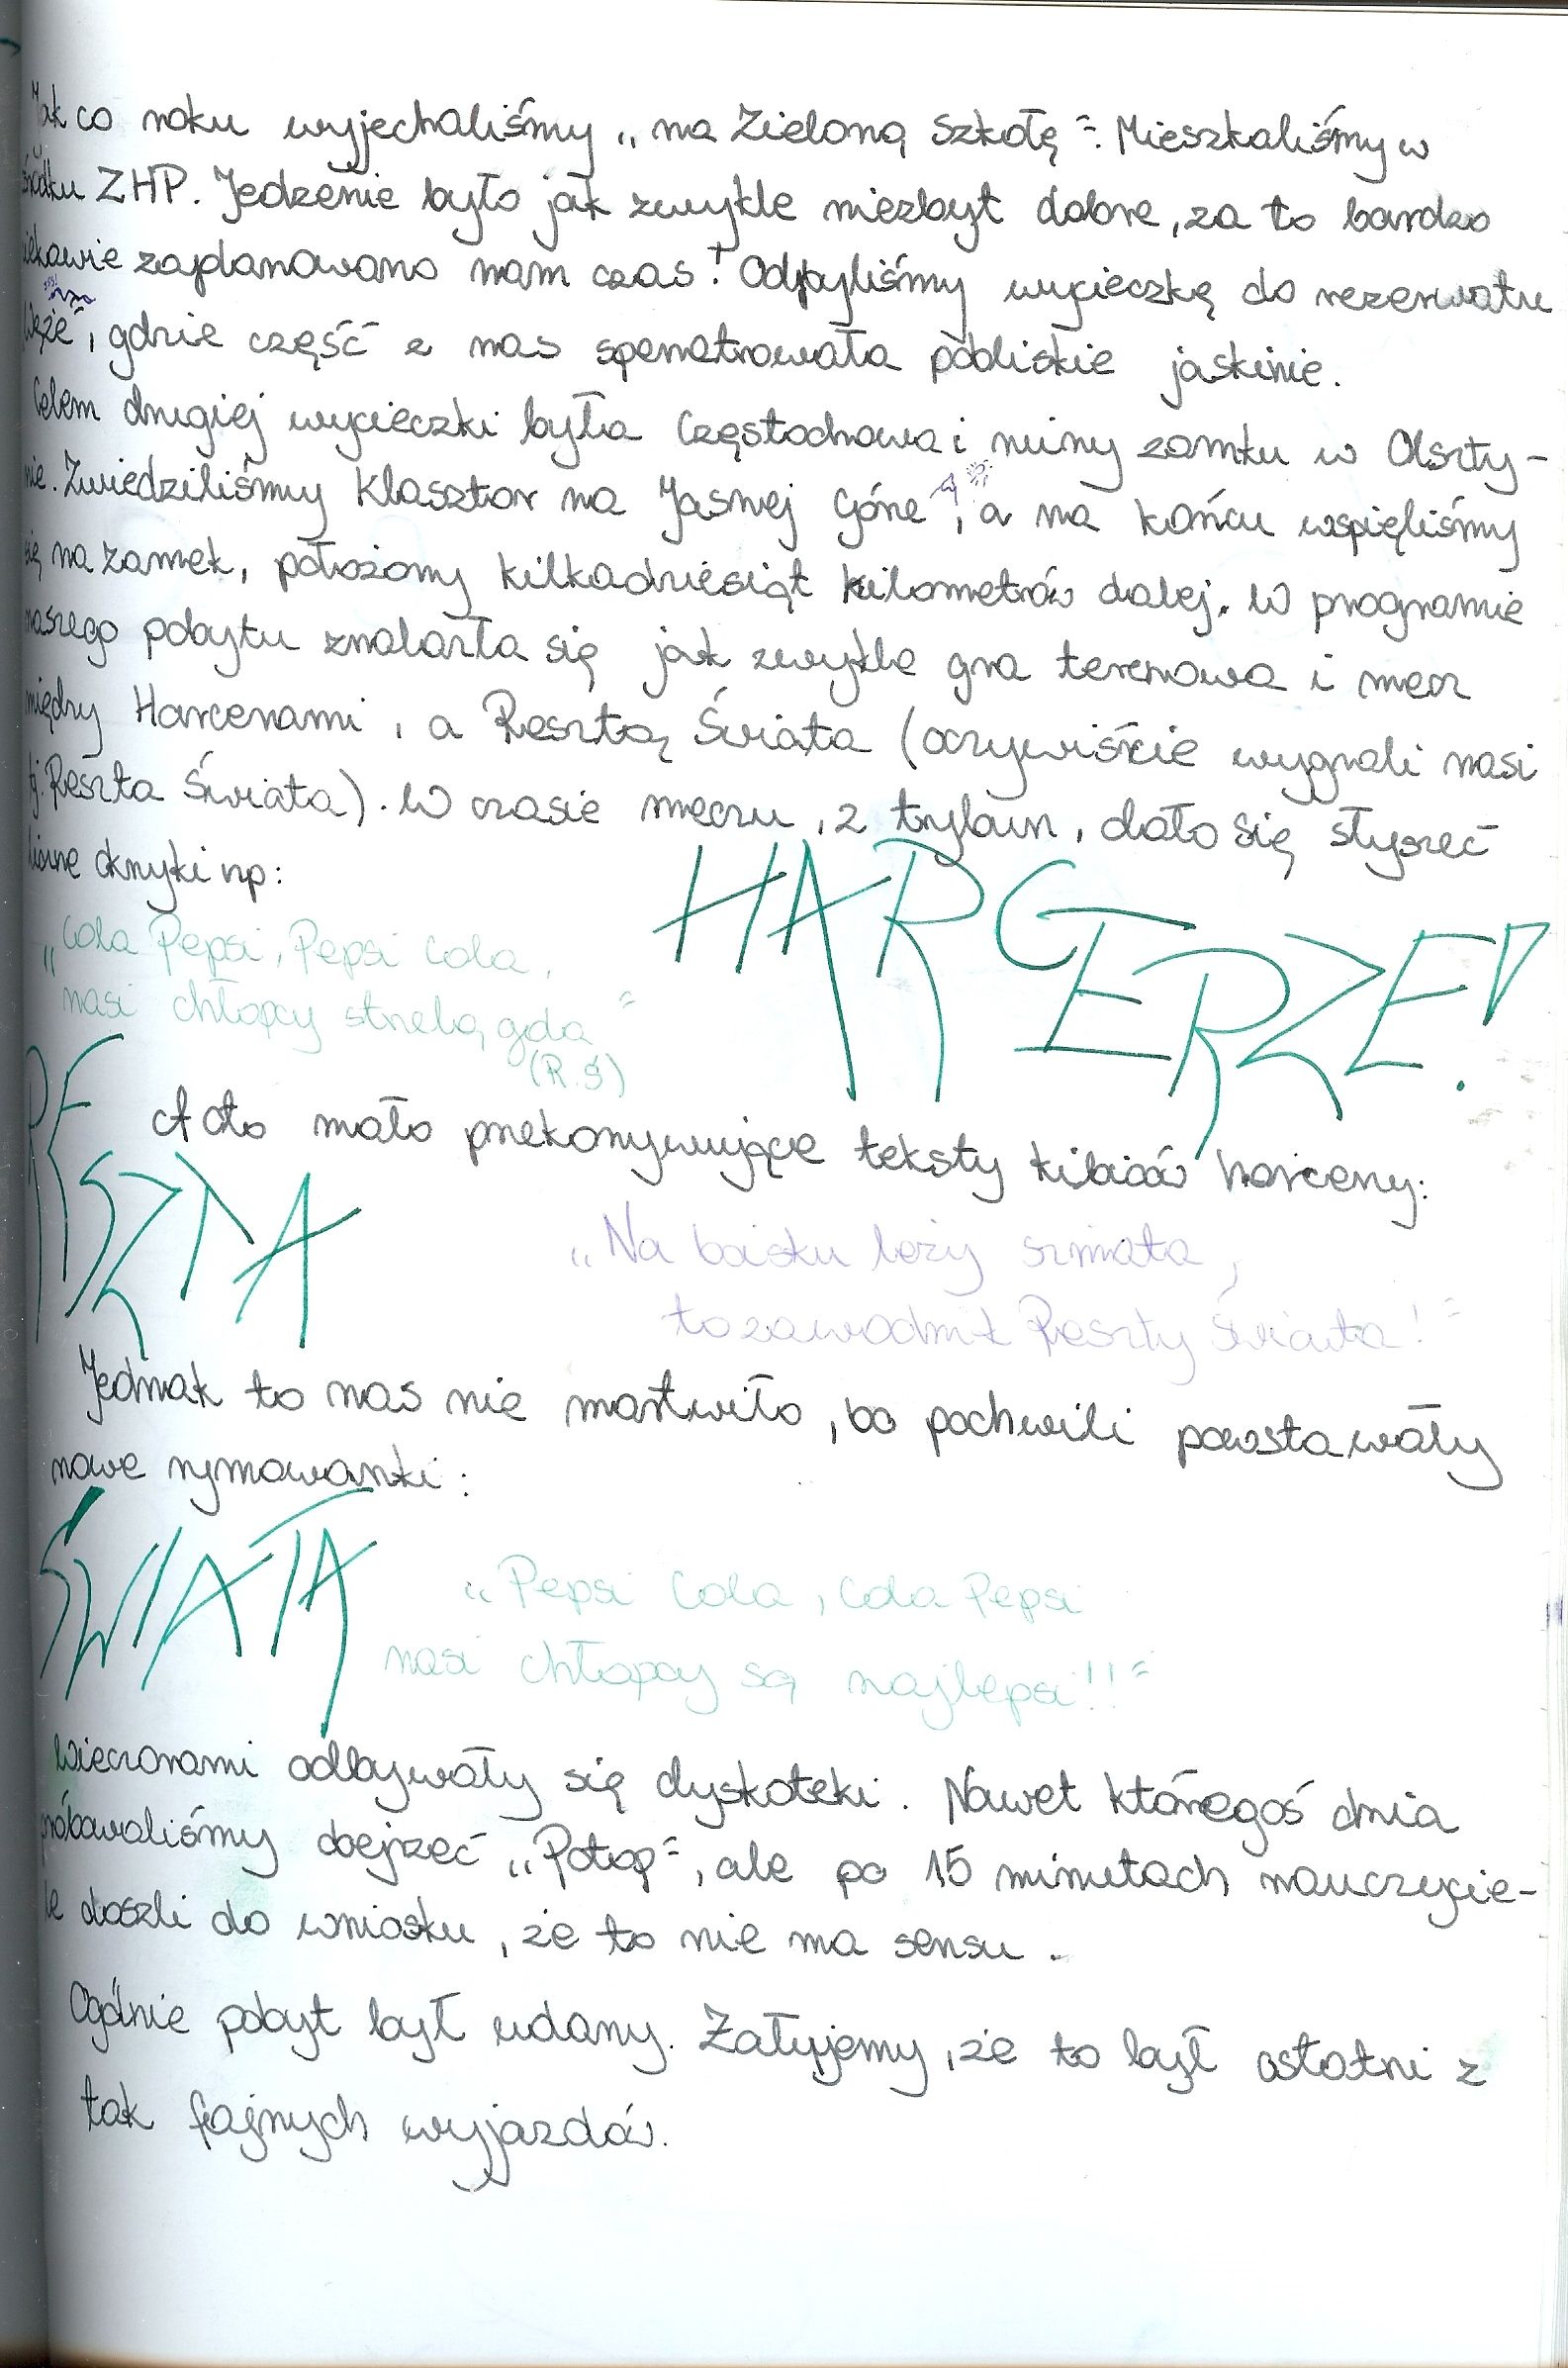 Jak co roku wyjechaliśmy „na Zieloną Szkołę". Mieszkaliśmy w
ośrodku ZHP. Jedzenie było jak zwykle niezbyt dobre, za to bardzo
ciekawie zaplanowano nam czas! Odbyliśmy wycieczkę do rezerwatu
„Węże", gdzie część z nas spenetrowała pobliskie jaskinie.
Celem drugiej wycieczki była Częstochowa i ruiny zamku w Olszty-
nie. Zwiedziliśmy Klasztor na Jasnej Górze, a na końcu wspięliśmy
się na zamek, położony kilkadziesiąt kilometrów dalej. W programie
naszego pobytu znalazła się jak zwykle gra terenowa i mecz
między Harcerzami, a Resztą Świata (oczywiście wygrali nasi
tj. Reszta Świata). W czasie meczu, z trybun, dało się słyszeć
liczne okrzyki np:
HARCERZE!
„Cola Pepsi, Pepsi Cola,
nasi chłopcy strzelą gola"
(R.Ś)
RESZTA
A oto mało przekonywujące teksty kibiców harcerzy:
„Na boisku leży szmata,
to zawodnik Reszty Świata!"
Jednak to nas nie martwiło, bo pochwili powstawały
nowe rymowanki:
ŚWIATA
„Pepsi Cola, Cola Pepsi
nasi chłopcy są najlepsi!!"
Wieczorami odbywały się dyskoteki. Nawet któregoś dnia
próbowaliśmy obejrzeć „Potop", ale po 15 minutach nauczycie-
le doszli do wniosku, że to nie ma sensu.
Ogólnie pobyt był udany. Żałujemy, że to był ostatni z
tak fajnych wyjazdów.